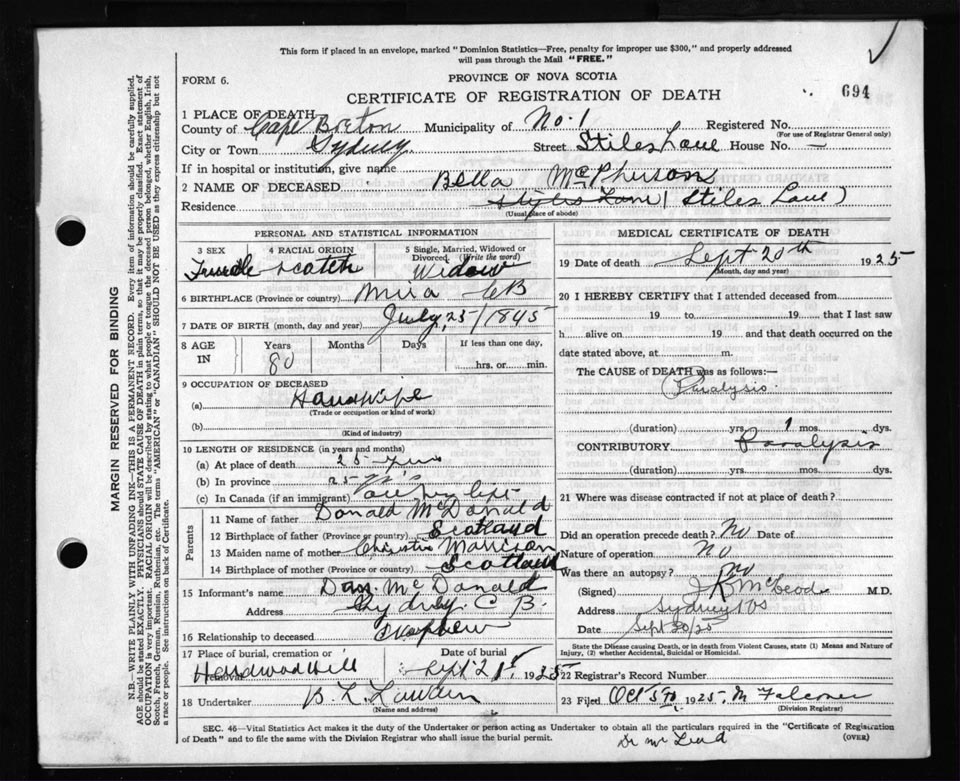 This form if placed in an envelope, marked "Dominion Statistics—Free, penalty for improper use $300," and properly addressed
will pass through the Mail "FREE."
FORM 6.
PROVINCE OF NOVA SCOTIA
CERTIFICATE OF REGISTRATION OF DEATH
694
1 PLACE OF DEATH
County of Cape Breton Municipality of No. 1 Registered No.
(For use of Registrar General only)
City or Town Sydney Street Stiles Lane House No. —
If in hospital or institution, give name
2 NAME OF DECEASED Bella McPherson
Residence Styles Lane (Stiles Lane)
(Usual place of abode)
PERSONAL AND STATISTICAL INFORMATION
3 SEX Female
4 RACIAL ORIGIN Scotch
5 Single, Married, Widowed or Divorced (Write the word) Widow
6 BIRTHPLACE (Province or country) Mira CB
7 DATE OF BIRTH (month, day and year) July 25/1845
8 AGE IN Years 80 Months Days If less than one day, hrs. or min.
9 OCCUPATION OF DECEASED
(a) Housewife
(Trade or occupation or kind of work)
(b)
(Kind of industry)
10 LENGTH OF RESIDENCE (in years and months)
(a) At place of death 25 yrs
(b) In province 25
(c) In Canada (if an immigrant) all my life
Parents
11 Name of father Donald McDonald
12 Birthplace of father (Province or country) Scotland
13 Maiden name of mother Christie Morrison
14 Birthplace of mother (Province or country) Scotland
15 Informant's name Dan McDonald
Address Sydney C B.
16 Relationship to deceased Nephew
17 Place of burial, cremation or Removal Hardwood Hill
Date of burial Sept 21st 1925
18 Undertaker B. L.
(Name and address)
MEDICAL CERTIFICATE OF DEATH
19 Date of death Sept 20th 1925
(Month, day and year)
20 I HEREBY CERTIFY that I attended deceased from
19 to 19 that I last saw
h alive on 19 and that death occurred on the
date stated above, at m.
The CAUSE of DEATH was as follows:—
Paralysis.
(duration) yrs. 1 mos. dys.
CONTRIBUTORY Paralysis
(duration) yrs. mos. dys.
21 Where was disease contracted if not at place of death?
Did an operation precede death? No Date of
Nature of operation No
Was there an autopsy? No
(Signed) McLeod M.D.
Address Sydney NS
Date Sept 20/25
State the Disease causing Death, or in death from Violent Causes, state (1) Means and Nature of
Injury, (2) whether Accidental, Suicidal or Homicidal.
22 Registrar's Record Number
23 Filed Oct 5th 1925, M Falconer
(Division Registrar)
SEC. 46—Vital Statistics Act makes it the duty of the Undertaker or person acting as Undertaker to obtain all the particulars required in the "Certificate of Registration
of Death" and to file the same with the Division Registrar who shall issue the burial permit.
(OVER)
Dr McLeod
MARGIN RESERVED FOR BINDING
N.B.—WRITE PLAINLY WITH UNFADING INK—THIS IS A PERMANENT RECORD. Every item of information should be carefully supplied.
AGE should be stated EXACTLY. PHYSICIANS should STATE CAUSE OF DEATH in plain terms, so that it may be properly classified. Exact statement of
OCCUPATION is very important. RACIAL ORIGIN will be described by stating to what people or tongue the deceased person belonged, whether English, Irish,
Scotch, French, German, Russian, Ruthenian, etc. The terms "AMERICAN" or "CANADIAN" SHOULD NOT BE USED as they express citizenship but not
a race or people. See instructions on back of Certificate.